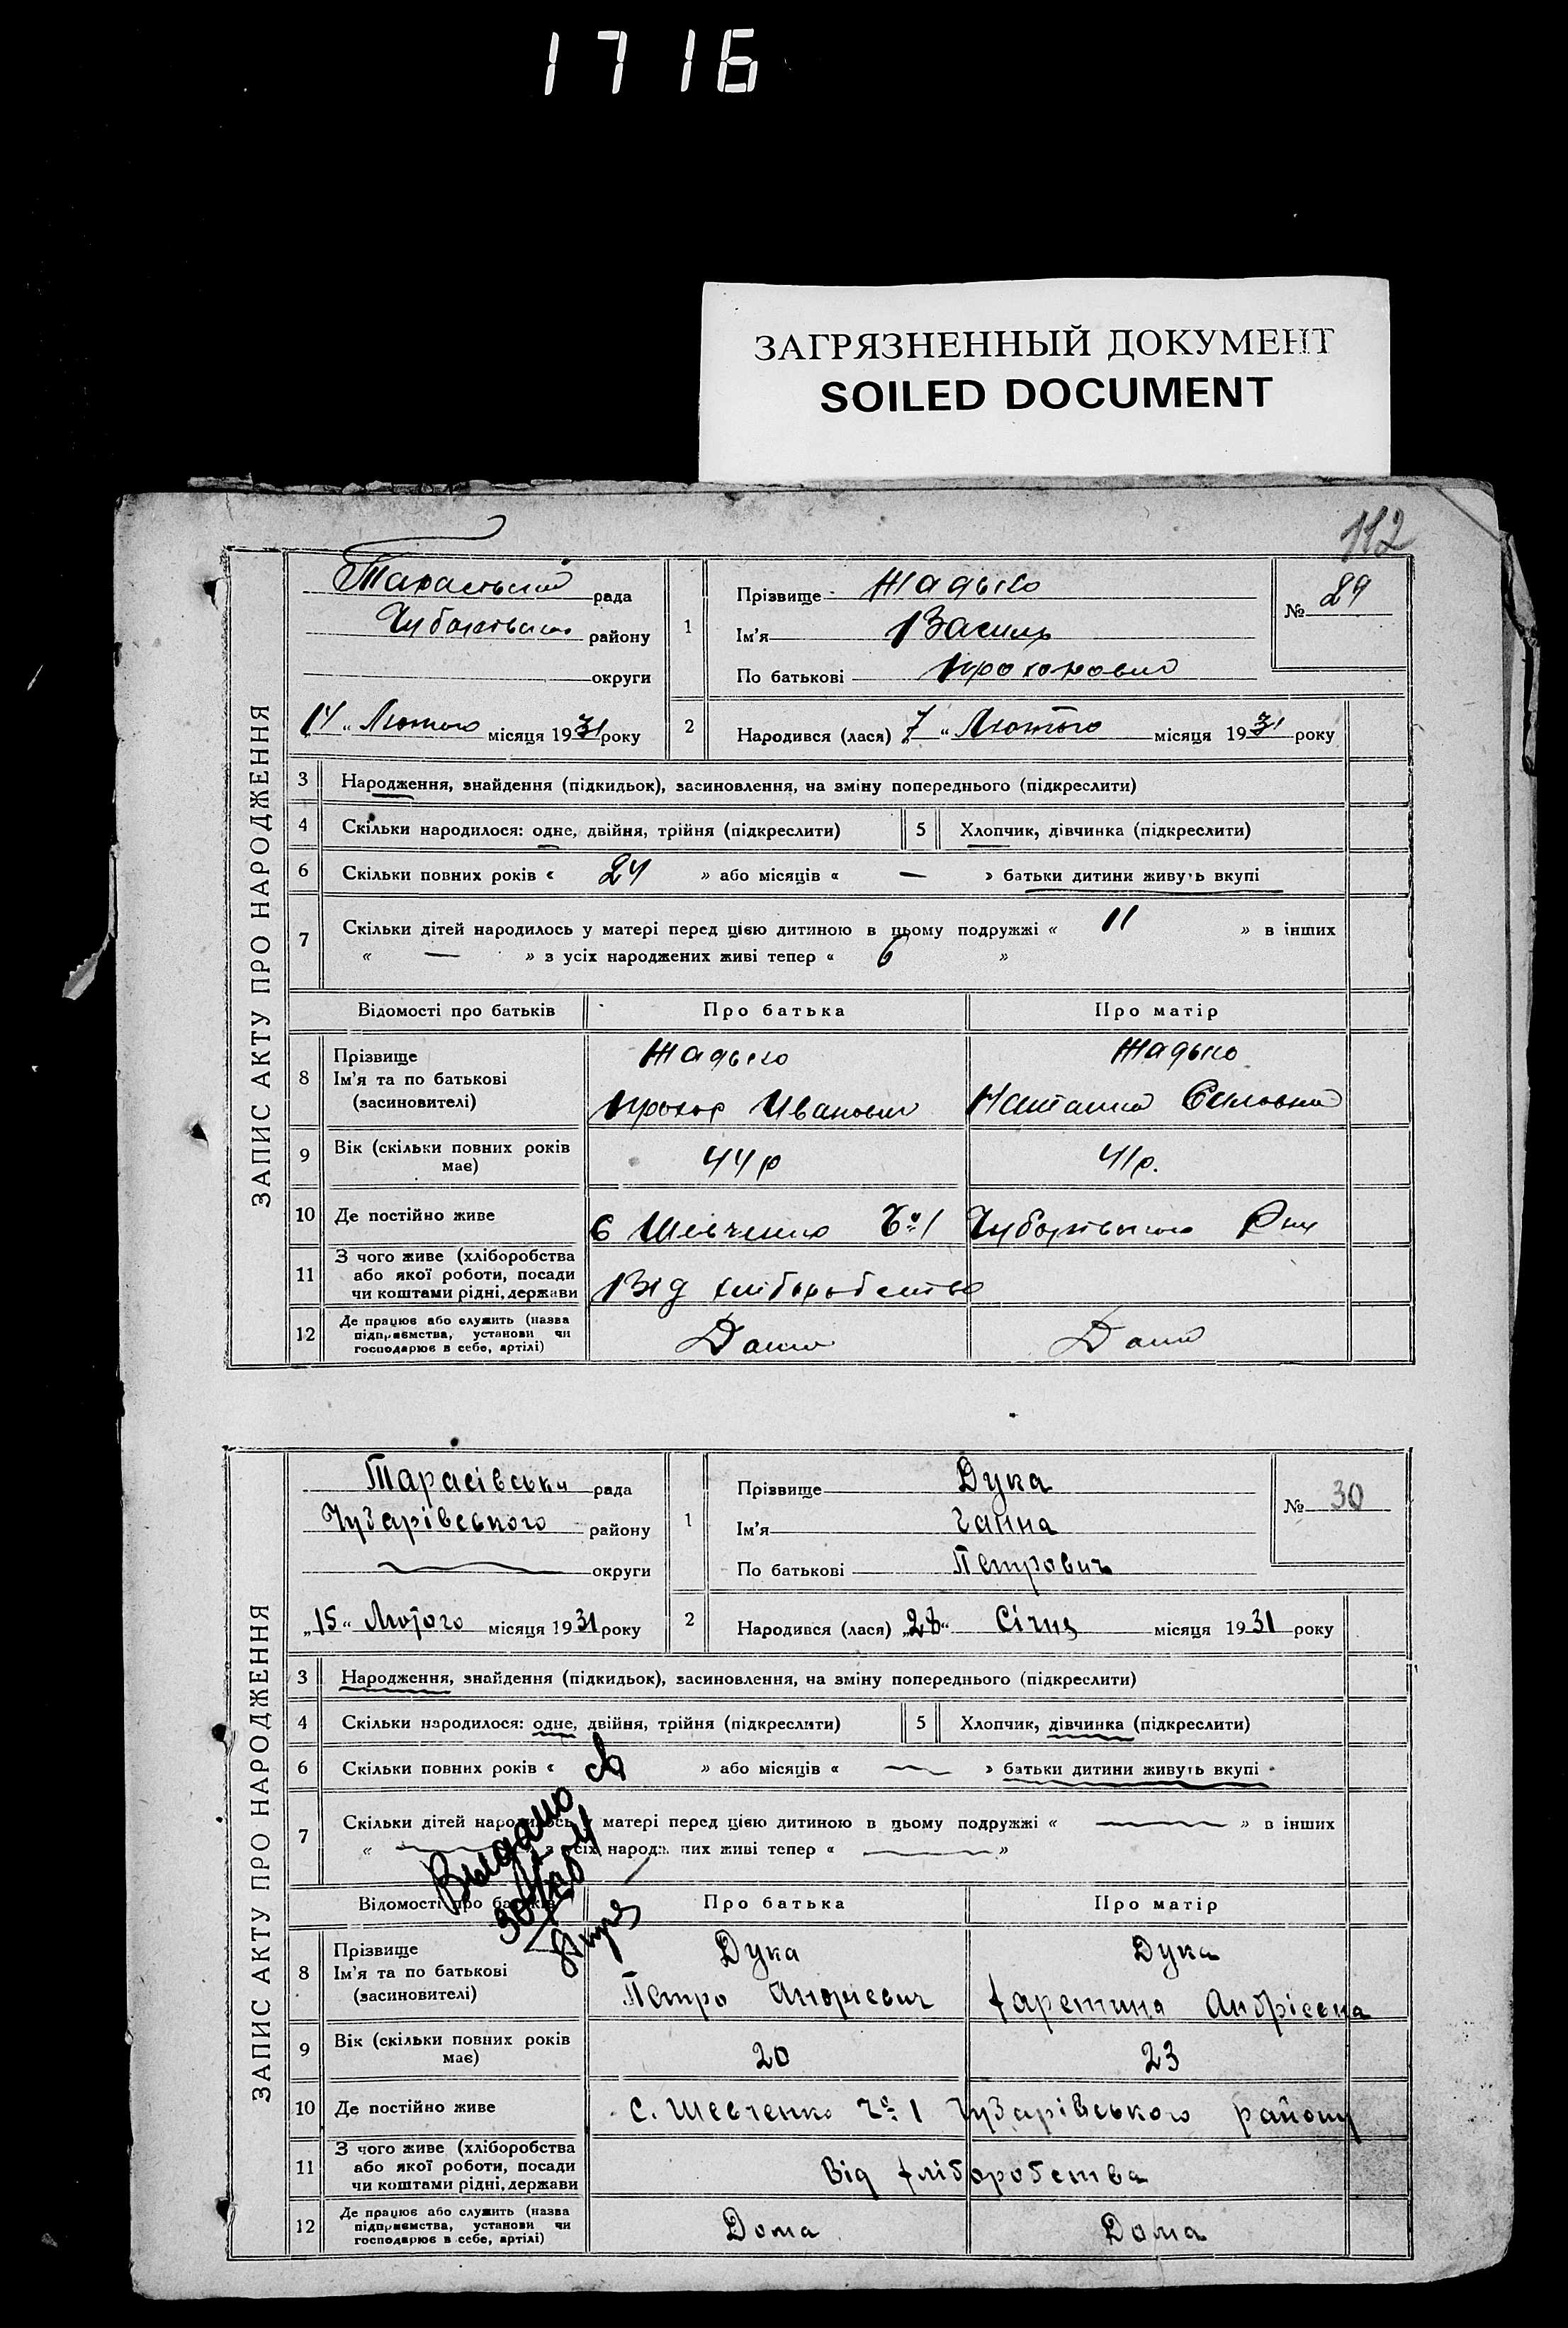 1716
ЗАГРЯЗНЕННЫЙ ДОКУМЕНТ
SOILED DOCUMENT
112
ЗАПИС АКТУ ПРО НАРОДЖЕННЯ
рада
району
округи
14 " Лютого місяця 1931 року
1
Прізвище Жадько
Ім'я Василь
По батькові Прохорович
№ 29
2
Народився (лася) 7 " Лютого місяця 1931 року
3 Народження, знайдення (підкидьок), засиновлення, на зміну попереднього (підкреслити)
4 Скільки народилося: одне, двійня, трійня (підкреслити) 5 Хлопчик, дівчинка (підкреслити)
6 Скільки повних років « 24 » або місяців « — » батьки дитини живуть вкупі
7 Скільки дітей народилось у матері перед цією дитиною в цьому подружжі « 11 » в інших
« — » з усіх народжених живі тепер « 6 »
Відомості про батьків Про батька Про матір
8 Прізвище Жадько Жадько
Ім'я та по батькові
(засиновителі) Прохор Иванович
9 Вік (скільки повних років має) 44 р 41 р.
10 Де постійно живе С Шевченко Ч№1 Рну
11 З чого живе (хліборобства або якої роботи, посади чи коштами рідні, держави Від хліборобства
12 Де працює або служить (назва підприємства, установи чи господарює в себе, артілі) Дома Дома
ЗАПИС АКТУ ПРО НАРОДЖЕННЯ
Тарасівська рада
району
округи
„15" Лютого місяця 1931 року
1
Прізвище Дука
Ім'я Ганна
По батькові Петрович
№ 30
2
Народився (лася) „28" Січня місяця 1931 року
3 Народження, знайдення (підкидьок), засиновлення, на зміну попереднього (підкреслити)
4 Скільки народилося: одне, двійня, трійня (підкреслити) 5 Хлопчик, дівчинка (підкреслити)
6 Скільки повних років « » або місяців « — » батьки дитини живуть вкупі
7 Скільки дітей народилось у матері перед цією дитиною в цьому подружжі « — » в інших
« — » з усіх народжених живі тепер « — »
Выдано
Відомості про батьків Про батька Про матір
8 Прізвище Дука Дука
Ім'я та по батькові
(засиновителі) Петро Андрієвич Харетина Андрієвна
9 Вік (скільки повних років має) 20 23
10 Де постійно живе С. Шевченко Ч№1 району
11 З чого живе (хліборобства або якої роботи, посади чи коштами рідні, держави Від хліборобства
12 Де працює або служить (назва підприємства, установи чи господарює в себе, артілі) Дома Дома